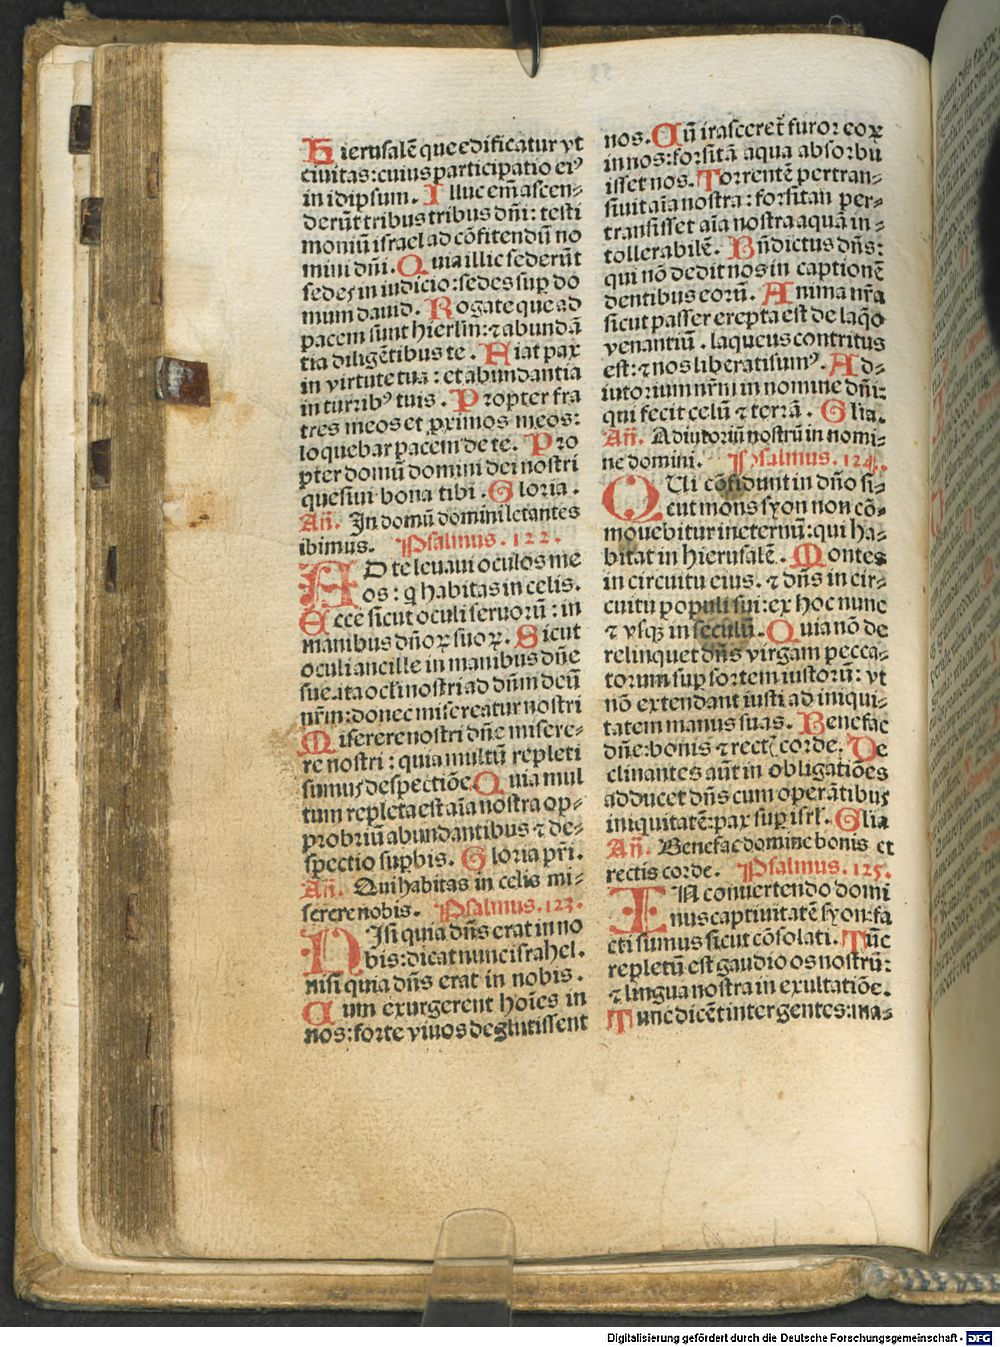 Hierusalē que edificatur vt
ciuitas: cuius participatio eiꝰ
in idipsum. Illuc em̄ ascen-
derūt tribus tribus dn̄i: testi
moniū israel ad cōfitendū no
mini dn̄i. Quia illic sederūt
sedes in iudicio: sedes suꝑ do
mum dauid. Rogate que ad
pacem sunt hierlm̄: ⁊ abundā
tia diligētibus te. Fiat pax
in virtute tua: et abundantia
in turribꝰ tuis. Propter fra
tres meos et ꝓximos meos:
loquebar pacem de te. Pro
pter domū domini dei nostri
quesiui bona tibi. Gloria.
An̄. In domū domini letantes
ibimus. Psalmus. 122.
AD te leuaui oculos me
os: q habitas in celis.
Ecce sicut oculi seruorū: in
manibus dn̄oꝝ suoꝝ. Sicut
oculi ancille in manibus dn̄e
sue. ita ocl̄i nostri ad dn̄m deū
nr̄m: donec misereatur nostri
Miserere nostri dn̄e misere-
re nostri: quia multū repleti
sumus despectiōe. Quia mul
tum repleta est aīa nostra op-
probriū abundantibus ⁊ de-
spectio suꝑbis. Gloria pr̄i.
An̄. Qui habitas in celis mi-
serere nobis. Psalmus. 123.
NIsi quia dn̄s erat in no
bis: dicat nunc israhel.
nisi quia dn̄s erat in nobis.
Cum exurgerent hoīes in
nos: forte viuos deglutissent
nos. Cū irasceret̄ furor eoꝝ
in nos: forsitā aqua absorbu
isset nos. Torrentē pertran-
siuit aīa nostra: forsitan per-
transisset aīa nostra aquā in-
tollerabilē. Bn̄dictus dn̄s:
qui nō dedit nos in captionē
dentibus eorū. Anima nr̄a
sicut passer erepta est de laq̄o
venantiū. laqueus contritus
est: ⁊ nos liberati sumꝰ. Ad-
iutorium nr̄m in nomine dn̄i:
qui fecit celū ⁊ terrā. Glīa.
An̄. Adiutoriū nostrū in nomi-
ne domini. Psalmus. 124.
QUi cōfidunt in dn̄o si-
cut mons syon non cō-
mouebitur in eternū: qui ha-
bitat in hierusalē. Montes
in circuitu eius. ⁊ dn̄s in cir-
cuitu populi sui: ex hoc nunc
⁊ vsqꝫ in seculū. Quia nō de
relinquet dn̄s virgam pecca-
torum suꝑ sortem iustorū: vt
nō extendant iusti ad iniqui-
tatem manus suas. Benefac
dn̄e: bonis ⁊ rectꝭ corde. De
clinantes aūt in obligatiōes
adducet dn̄s cum operātibus
iniquitatē: pax suꝑ isrl̄. Glīa
An̄. Benefac domine bonis et
rectis corde. Psalmus. 125.
IN conuertendo domi
nus captiuitatē syon: fa
cti sumus sicut cōsolati. Tūc
repletū est gaudio os nostrū:
⁊ lingua nostra in exultatiōe.
Tunc dicēt inter gentes: ma-
Digitalisierung gefördert durch die Deutsche Forschungsgemeinschaft - DFG